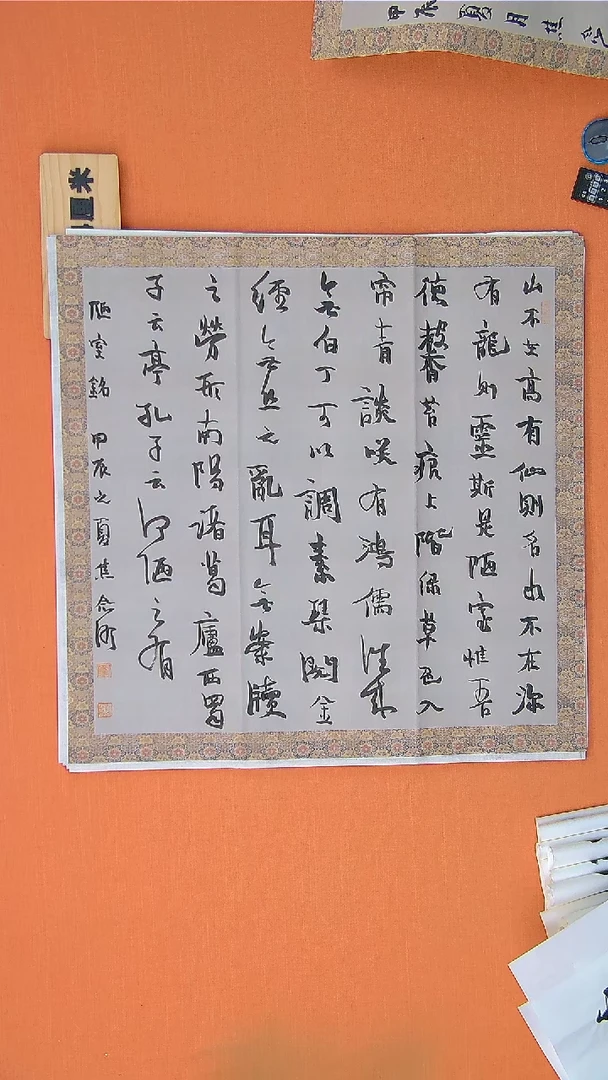 山不在高有仙則名水不在深
有龍則靈斯是陋室惟吾
德馨苔痕上階綠草色入
帘青談咲有鴻儒往來
無白丁可以調素琴閱金
經無絲之亂耳無案牘
之勞形南陽諸葛廬西蜀
子云亭孔子云何陋之有
陋室銘 甲辰之夏焦念
甲辰夏月焦念
米厘